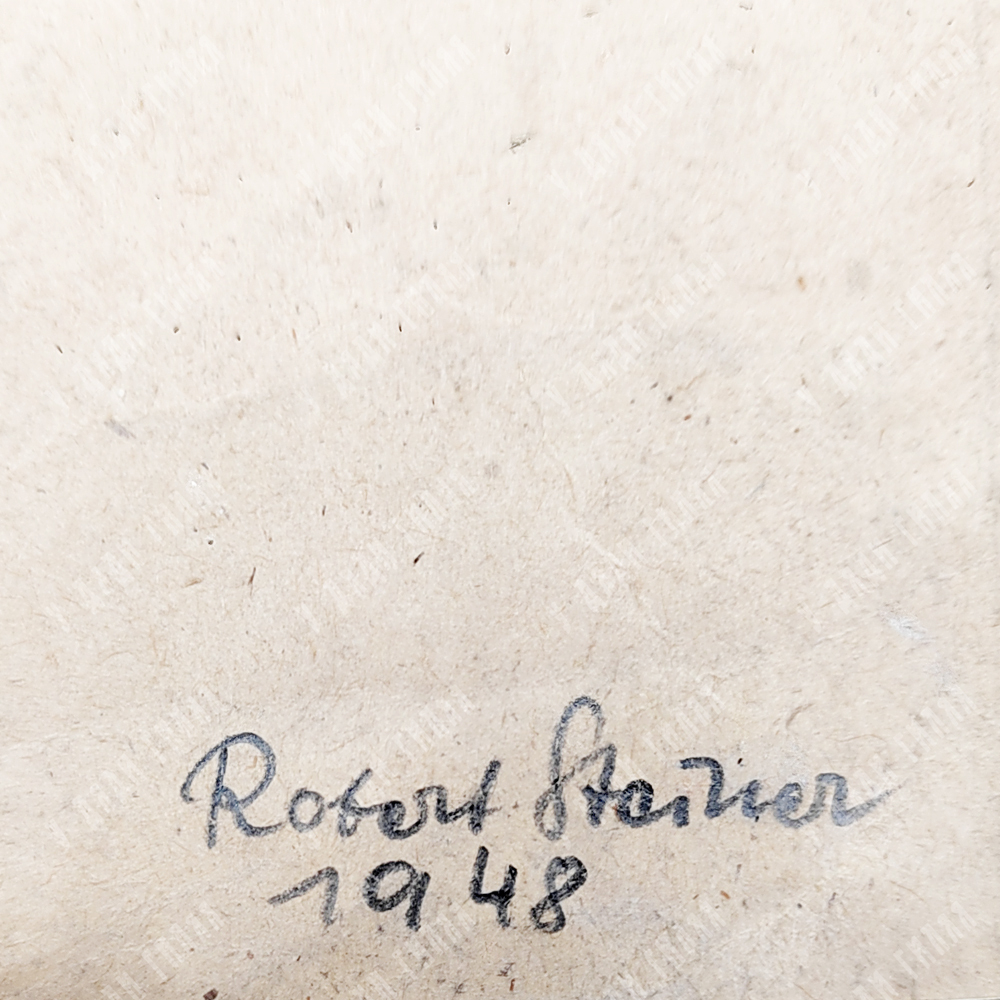 Robert Steiner
1948